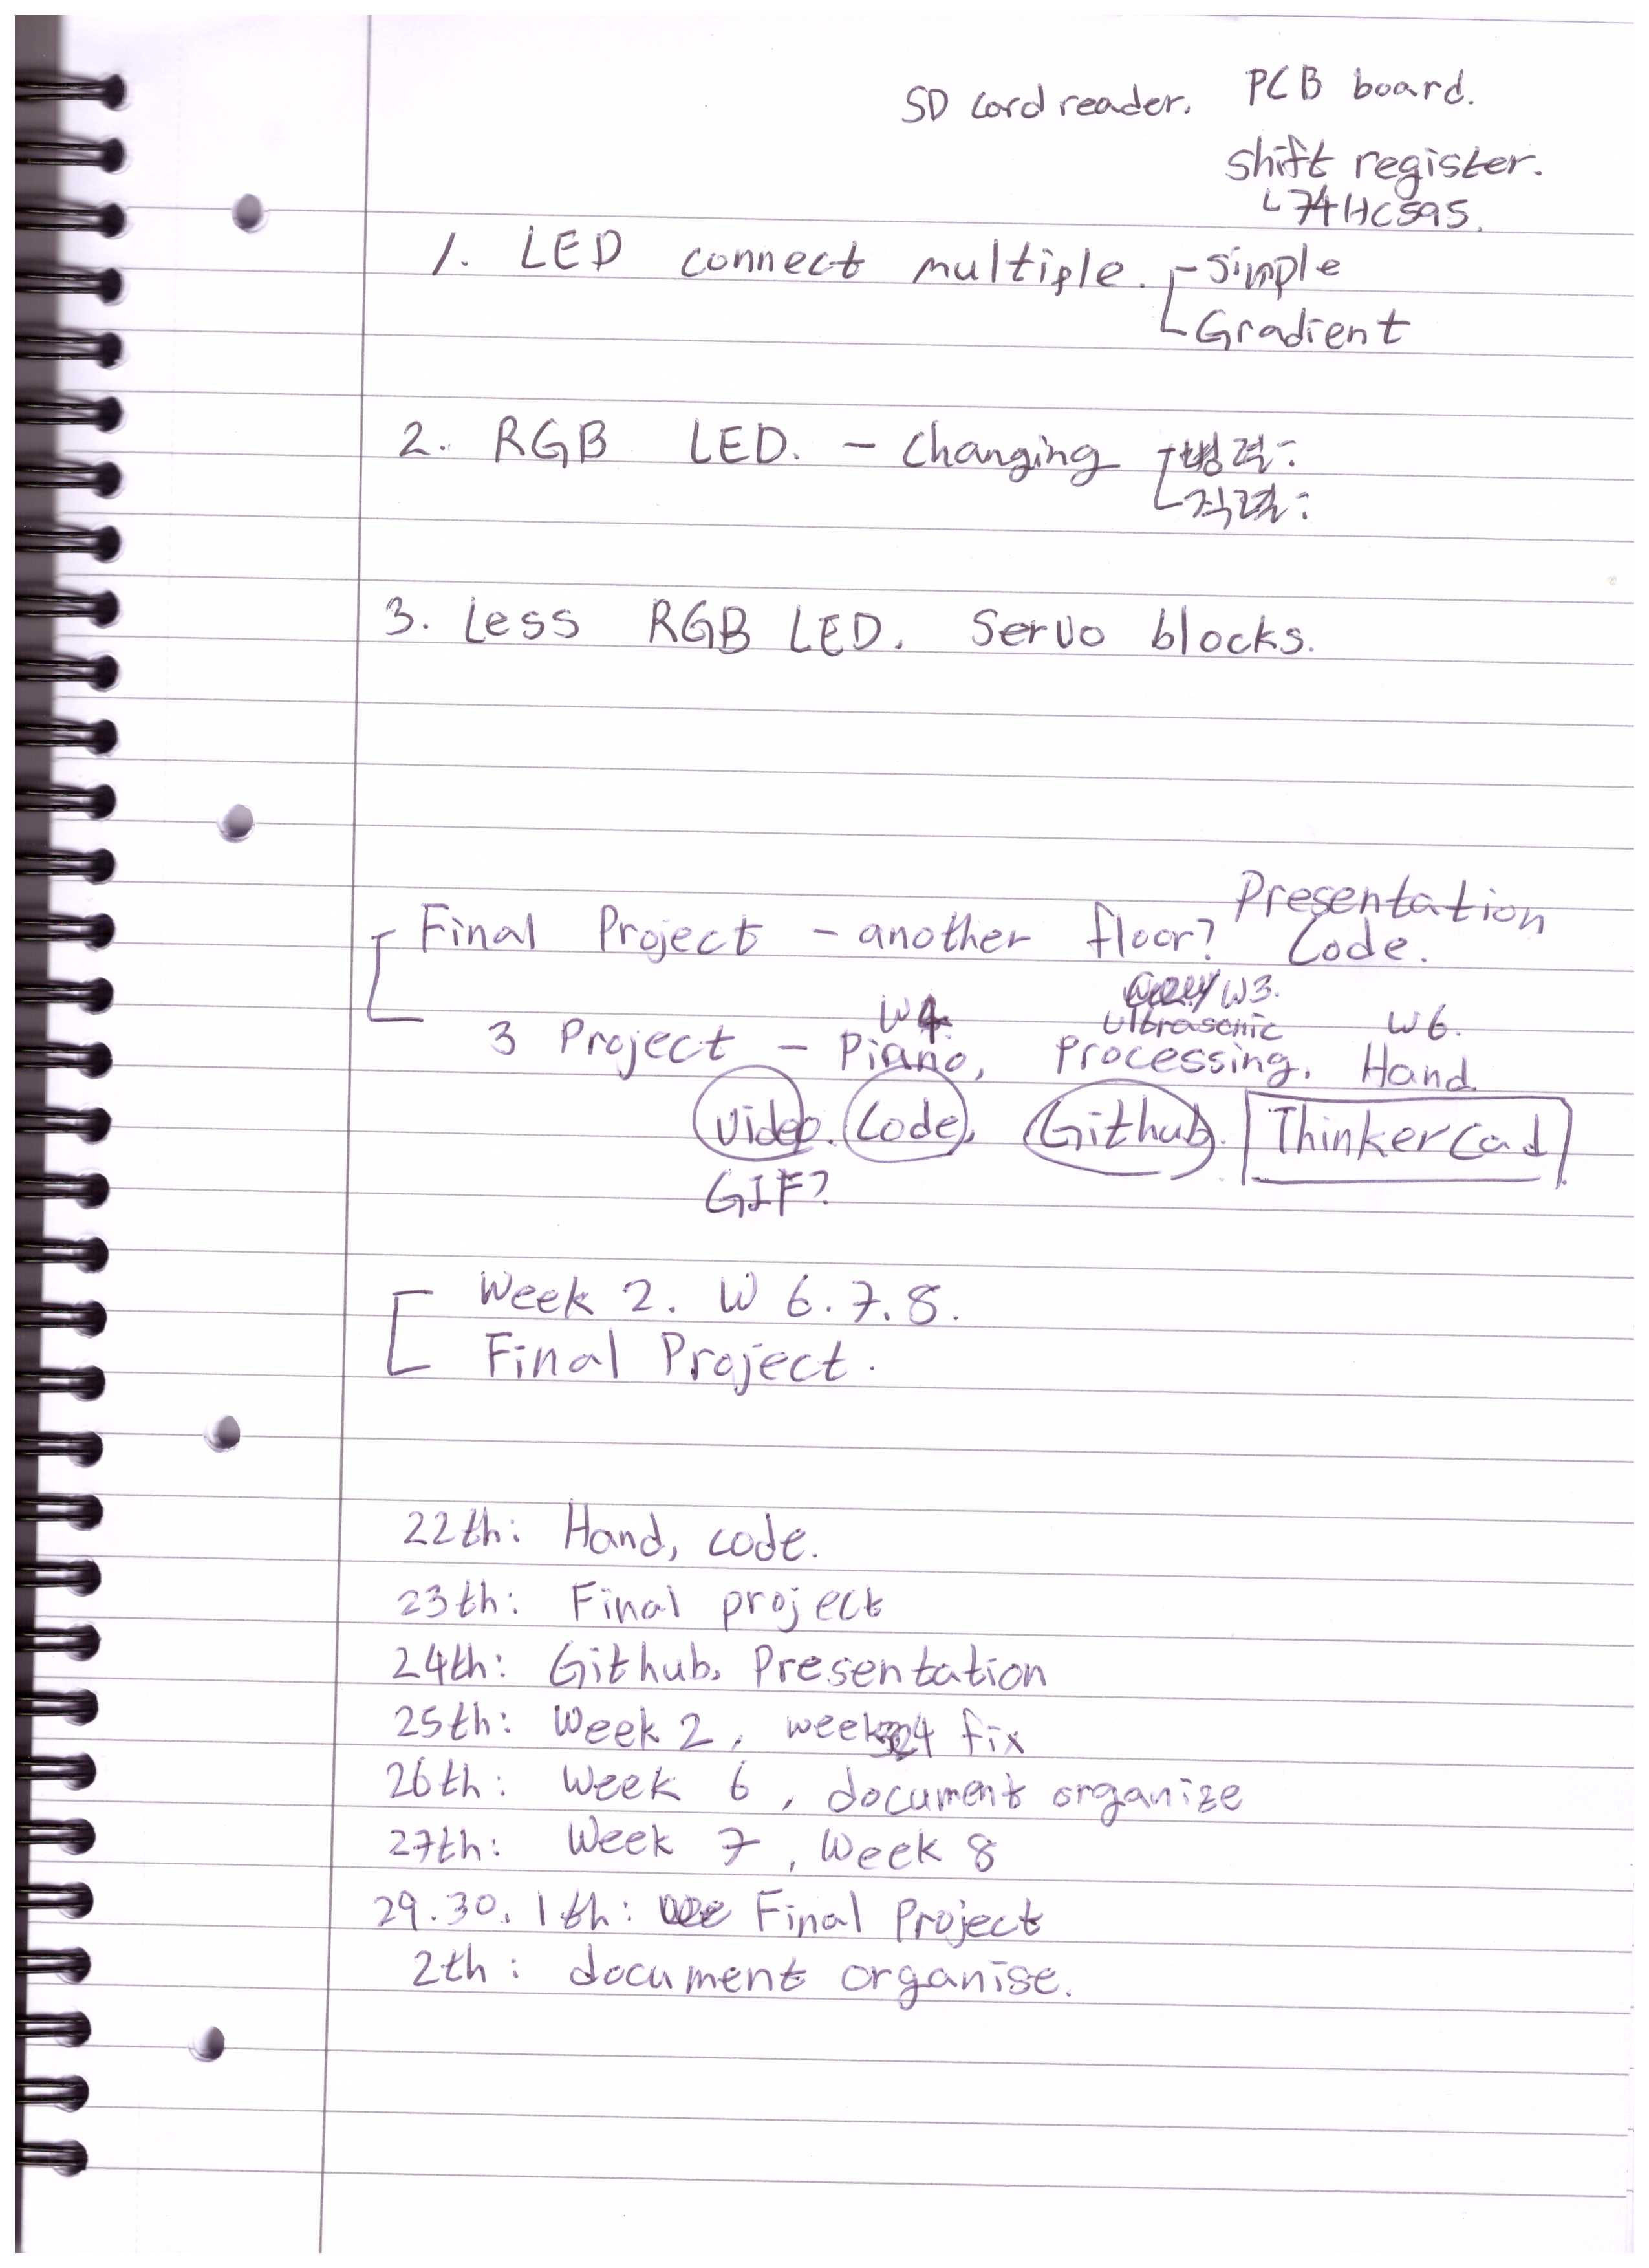 SD card reader. PCB board.
shift register.
ㄴ74HC595.
1. LED connect multiple. simple
Gradient
2. RGB LED. - changing 병렬:
직렬:
3. Less RGB LED. Servo blocks.
Presentation
Final Project - another floor? Code.
W4 W3. W6.
Ultrasonic
3 Project - Piano, Processing, Hand
Video. Code, Github. ThinkerCad
GIF?
Week 2. W 6.7.8.
Final Project.
22th: Hand, code.
23th: Final project
24th: Github, Presentation
25th: Week 2, week 4 fix
26th: Week 6, document organize
27th: Week 7, Week 8
29.30.1th: Final Project
2th: document organise.